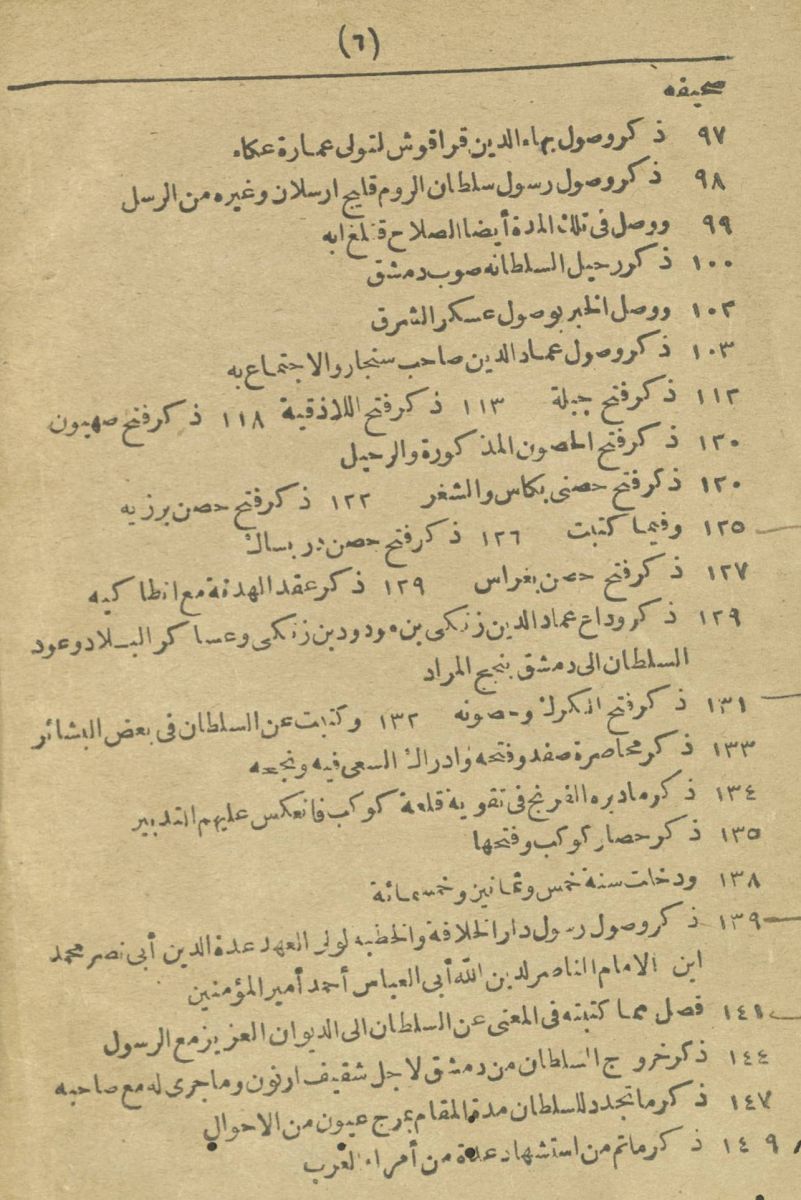 (٦)
صحيفه
٩٧ ذكر وصول بهاء الدين قراقوش لتولى عمارة عكاء
٩٨ ذكر وصول رسول سلطان الروم قليج ارسلان وغيره من الرسل
٩٩ ووصل فى تلك المدة أيضا الصلاح قتلغ ابه
١٠٠ ذكر رحيل السلطانه صوب دمشق
١٠٢ ووصل الخبر بوصول عسكر الشرق
١٠٣ ذكر وصول عماد الدين صاحب سنجار والاجتماع به
١١٢ ذكر فتح جبلة ١١٣ ذكر فتح اللاذقية ١١٨ ذكر فتح صهيون
١٢٠ ذكر فتح الحصون المذكورة والرحيل
١٢٠ ذكر فتح حصنى بكاس والشغر ١٢٢ ذكر فتح حصن برزيه
١٢٥ وفيما كتبت ١٢٦ ذكر فتح حصن دربساك
١٢٧ ذكر فتح حصن بغراس ١٢٩ ذكر عقد الهدنة مع انطاكيه
١٢٩ ذكر وداع عماد الدين زنكى بن مودود بن زنكى وعساكر البلاد وعود
السلطان الى دمشق بنجح المراد
١٣١ ذكر فتح الكرك وحصونه ١٣٢ وكتبت عن السلطان فى بعض البشائر
١٣٣ ذكر محاصرة صفد وفتحه وادراك السعى فيه ونجحه
١٣٤ ذكر مادبره الفرنج فى تقوية قلعة كوكب فانعكس عليهم التدبير
١٣٥ ذكر حصار كوكب وفتحها
١٣٨ ودخلت سنة خمس وثمانين وخمسمائة
١٣٩ ذكر وصول رسول دار الخلافة والخطبه لولى العهد عدة الدين أبى نصر محمد
ابن الامام الناصر لدين الله أبى العباس أحمد أمير المؤمنين
١٤١ فصل مما كتبته فى المعنى عن السلطان الى الديوان العزيز مع الرسول
١٤٤ ذكر خروج السلطان من دمشق لاجل شقيف ارنون وماجرى له مع صاحبه
١٤٧ ذكر ماتجدد للسلطان مدة المقام بمرج عيون من الاحوال
١٤٩ ذكر ماتم من استشهاد عدة من أمراء العرب